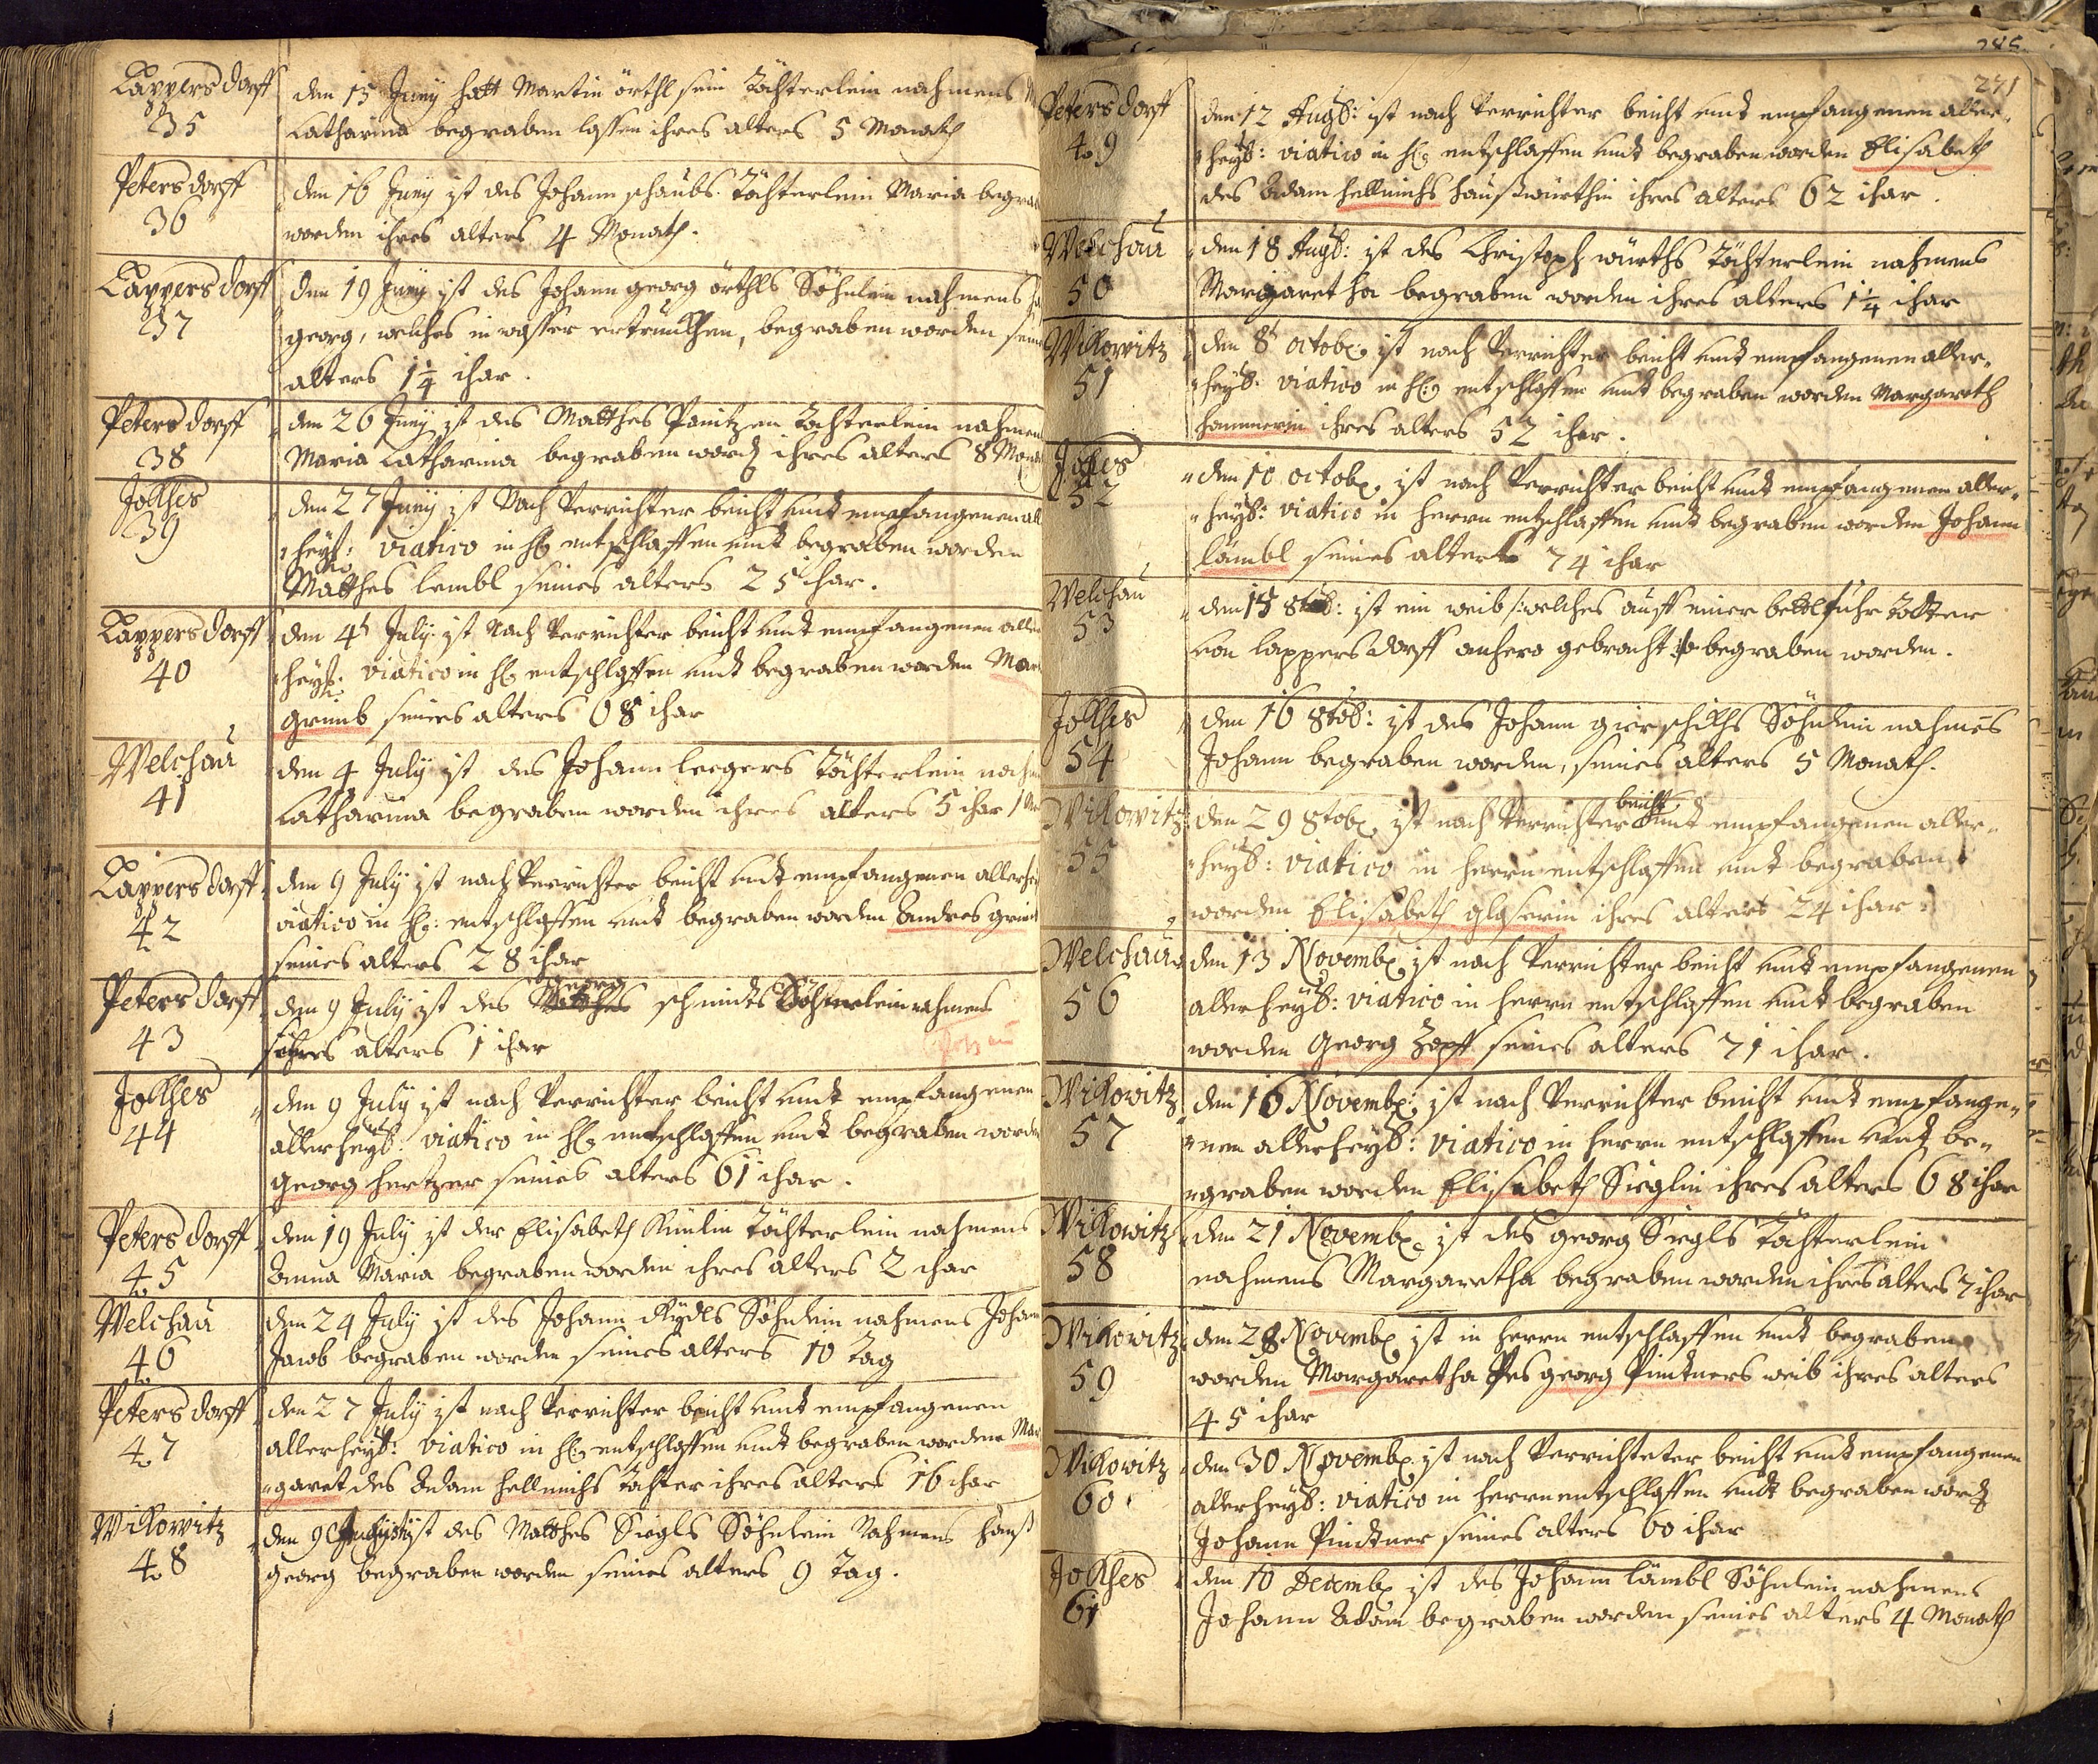 Lappersdorff
35
den 15 Juny hatt Martin örthl sein Töchterlein nahmens
Catharina begraben lassen ihres alters 5 Monath
Petersdorff
36
den 16 Juny ist des Johann schaubs Töchterlein Maria begra
worden ihres alters 4 Monath.
Lappersdorff
37
den 19 Juny ist des Johann georg örthls Söhnlein nahmens
georg, welches in wasser ertrunkhen, begraben worden, sein
alters 1 1/4 ihar.
Petersdorff
38
den 26 Juny ist des Matthes Panitzen Tochterlein nahmen
Maria Catharina begraben word ihres alters 8 Mona
Jokhes
39
den 27 Juny ist Nach Verrichter beicht undt empfangenen all
heyl: viatico in h entschlaffen undt begraben worden
Matthes lembl seines alters 25 ihar.
Lappersdorff
40
den 4t July ist Nach Verrichter beicht undt empfangenen aller
heyl: viatico in h entschlaffen undt begraben worden Mar
grimb seines alters 68 ihar
Welchau
41
den 4 July ist des Johann leegers Töchterlein nah
Catharina begraben worden ihres alters 5 ihar 1
Lappersdorff
42
den 9 July ist nach Verrichter beicht undt empfangenen allerhe
viatico in h: entschlaffen undt begraben worden Andres grim
seines alters 28 ihar
Petersdorff
43
georg
den 9 July ist des Matthes schmidts Söhnlein nahmens
ihres alters 1 ihar
Jokhes
44
den 9 July ist nach Verrichter beicht undt empfangenen
allerheyl: viatico in h entschlaffen undt begraben worden
georg hertzer seines alters 61 ihar.
Petersdorff
45
den 19 July ist der Elisabeth Künlin Töchterlein nahmens
Anna Maria begraben worden ihres alters 2 ihar
Welchau
46
den 24 July ist des Johann Rydls Söhnlein nahmens Johann
Jacob begraben worden seines alters 10 Tag
Petersdorff
47
den 27 July ist nach Verrichter beicht undt empfangenen
allerheyl: viatico in h entschlaffen undt begraben worden Mar
garet des Adam hellmichs Tochter ihres alters 16 ihar
Wikowitz
48
den 9 Augusti ist des Matthes Siegls Söhnlein Nahmens hanß
georg begraben worden seines alters 9 Tag.
271
Petersdorff
49
den 12 Augb: ist nach Verrichter beicht undt empfangenen aller-
heyl: viatico in h entschlaffen undt begraben worden Elisabeth
des Adam hellmichs haußwürthin ihres alters 62 ihar.
Welchau
50
den 18 Augb: ist des Christoph würths Töchterlein nahmens
Margaretha begraben worden ihres alters 1 1/4 ihar
Wikowitz
51
den 8t octob: ist nach Verrichter beicht undt empfangenen aller-
heyl: viatico in h entschlaffen undt begraben worden Margareth
hammerin ihres alters 52 ihar.
Jokhes
52
den 10 octob: ist nach Verrichter beicht undt empfangenen aller-
heyl: viatico in herrn entschlaffen undt begraben worden Johann
lämbl seines alters 74 ihar
Welchau
53
den 15 8tob: ist ein weib /:welches auff einer bettlfuhr Todter
von lappersdorff anhero gebracht:/ begraben worden.
Jokhes
54
den 16 8tob: ist des Johann gierschikhs Söhnlein nahmens
Johann begraben worden, seines alters 5 Monath.
Wikowitz
55
beicht
den 29 8tob: ist nach Verrichter undt empfangenen aller-
heyl: viatico in herrn entschlaffen undt begraben
worden Elisabeth glaserin ihres alters 24 ihar.
Welchau
56
den 13 Novemb: ist nach Verrichter beicht undt empfangenen
allerheyl: viatico in herrn entschlaffen undt begraben
worden Georg Zopff seines alters 71 ihar.
Wikowitz
57
den 16 Novemb: ist nach Verrichter beicht undt empfange-
nen allerheyl: viatico in herrn entschlaffen undt be-
graben worden Elisabeth Sieglin ihres alters 68 ihar
Wikowitz
58
den 21 Novemb: ist des georg Siegls Töchterlein
nahmens Margaretha begraben worden ihres alters 7 ihar
Wikowitz
59
den 28 Novemb: ist in herrn entschlaffen undt begraben
worden Margaretha des georg Pindtners weib ihres alters
45 ihar
Wikowitz
60
den 30 Novemb: ist nach Verrichteter beicht undt empfangenen
allerheyl: viatico in herrn entschlaffen undt begraben word
Johann Pindtner seines alters 60 ihar
Jokhes
61
den 10 Decemb: ist des Johann lämbl Söhnlein nahmens
Johann Adam begraben worden seines alters 4 Monath